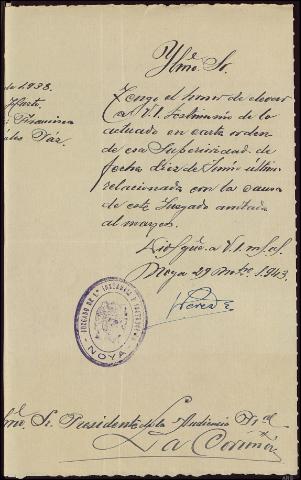 Ylmº Sr.
de 1938.
Tengo el honor de elevar
a V.I. testimonio de lo
Francisca
actuado en carta orden
Páz.
de esa Superioridad de
fecha diez de Junio último
relacionada con la causa
de este Juzgado anotada
al margen.
Dios gue. a V.I. m. s. as.
Noya 29 Nbre. 1.943.
JUZGADO DE 1ª INSTANCIA E INSTRUCCION
NOYA
Sr. Presidente de la Audiencia Pral.
La Coruña